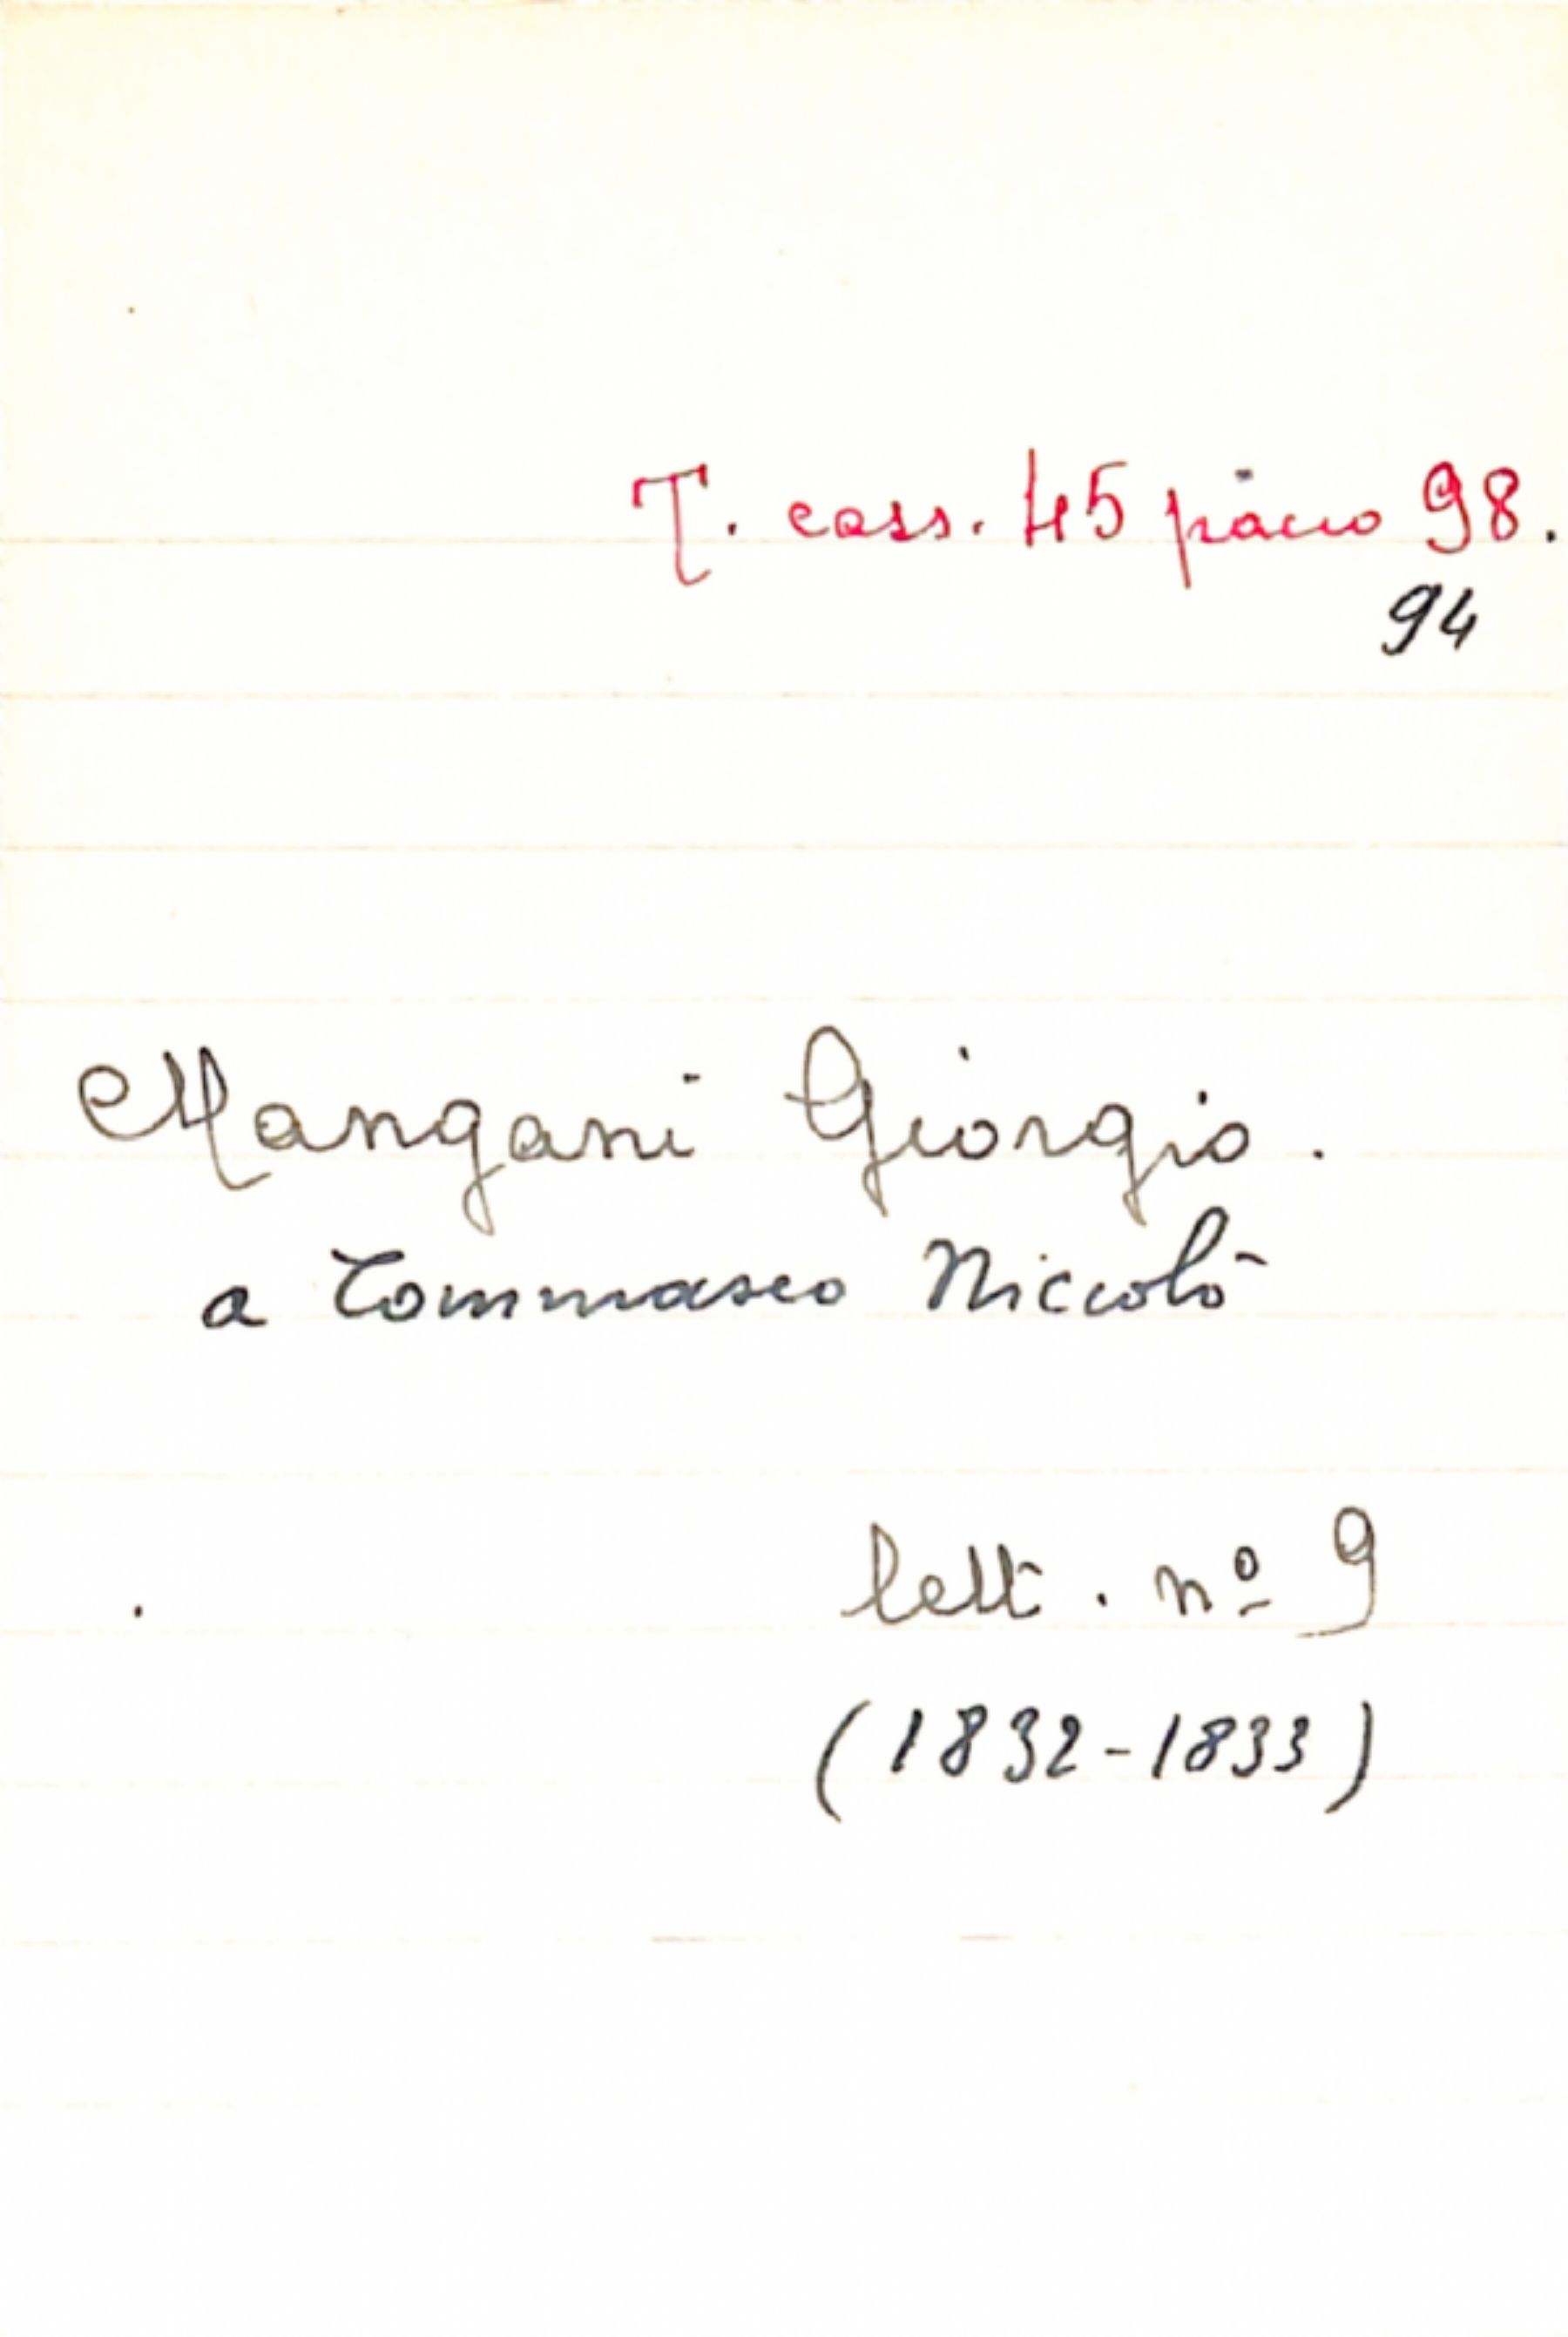 T. cass. 45 pacco 98.
94
Mangani Giorgio.
a Tommaseo Niccolò
lett. nº 9
(1832-1833)